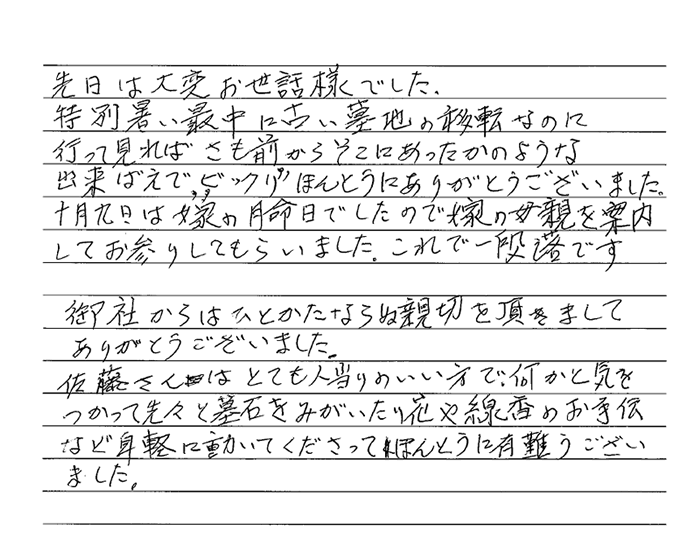 先日は大変お世話様でした.
特別暑い最中に古い墓地の移転なのに
行って見ればさも前からそこにあったかのような
出来ばえで,ビックリ!!ほんとうにありがとうございました。
十月九日は嫁の月命日でしたので嫁の母親を案内
してお参りしてもらいました。これで一段落です
御社からはひとかたならぬ親切を頂きまして
ありがとうございました。
佐藤さんはとても人当りのいい方で何かと気を
つかって先々と墓石をみがいたり花や線香のお手伝
など身軽に動いてくださってほんとうに有難うござい
ました。